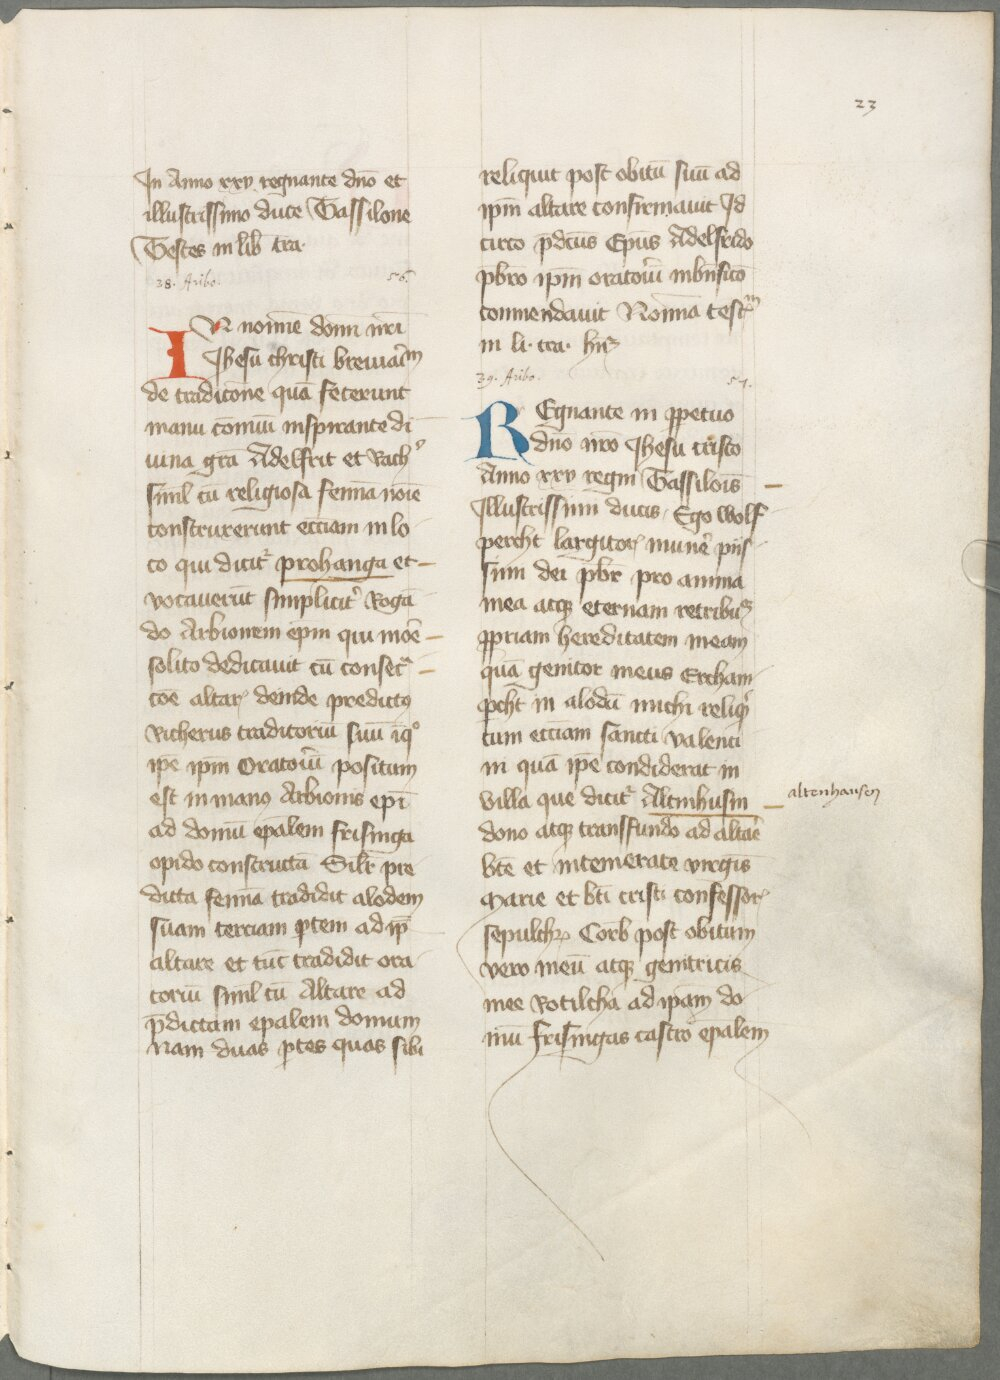 23
In Anno xxv regnante dño et
illustrissimo duce Tassilone
Testes in lib̄ tra.
38. Aribo. 56.
IN nomīe domī nr̄i
Jhesū christi breviar̄m
de tradicōne quā fecerunt
manu cōmūi inspirante di
vina grā Adelfrit et Rach
siml̄ cū religiosa femīa noīe
construxerunt ecc̄iam in lo
co qui dicit᷑ prohanga et
vocaverūt simplicit᷑ Roga
do Arbionem ep̄m qui mor̄e
solito dedicavit cū consec͛
c̄oe altar᷑ deinde predictꝰ
Richerus traditoriū suū iq̊
ip̄e ip̄m Orator̄iū positum
est in manꝰ Arbionis ep̄i
ad domū ep̄alem frisinga
opido constructā Sil̄r pre
dicta femīa tradidit alodem
suam terciam ꝑtem ad ip̄
altare et tūc tradidit ora
toriū siml̄ cū Altare ad
p̄dictam ep̄alem domum
Nam duas ꝑtes quas sibi
reliquit post obitū suū ad
ip̄m altare confirmavit Id
circo p̄dc̄us Ep̄us Adelfrido
pb̄ro ip̄m orator̄iū in bn̄ficiō
commendavit Nomīa testi͛m
in li. tra. hn̄r
39. Aribo. 57.
REgnante in ꝑpetuo
dño nr̄o Jhesu cristo
Anno xxv regni Tassilōis
Illustrissimi ducis. Ego Wolf
percht largitor᷑ munēr piis
simi dei pb̄r pro anima
mea atqꝫ eternam retribuꝫ
ꝓpriam hereditatem meam
quā genitor meus Ercham
ꝑcht in alodū michi reliq͛
cum ecc̄iam sancti Valenti
ni quā ip̄e condiderat in
Villa que dicit᷑ Altinhusin
altenhausen
dono atqꝫ transfundo ad altar̄e
bt̄e et intemerate virgīs
Marie et bt̄i cristi confessor᷑
sepulchꝝ Corb̄ post obitum
vero meū atqꝫ genitricis
mee Rotilcha ad ip̄am do
mū frisingas castro ep̄alem